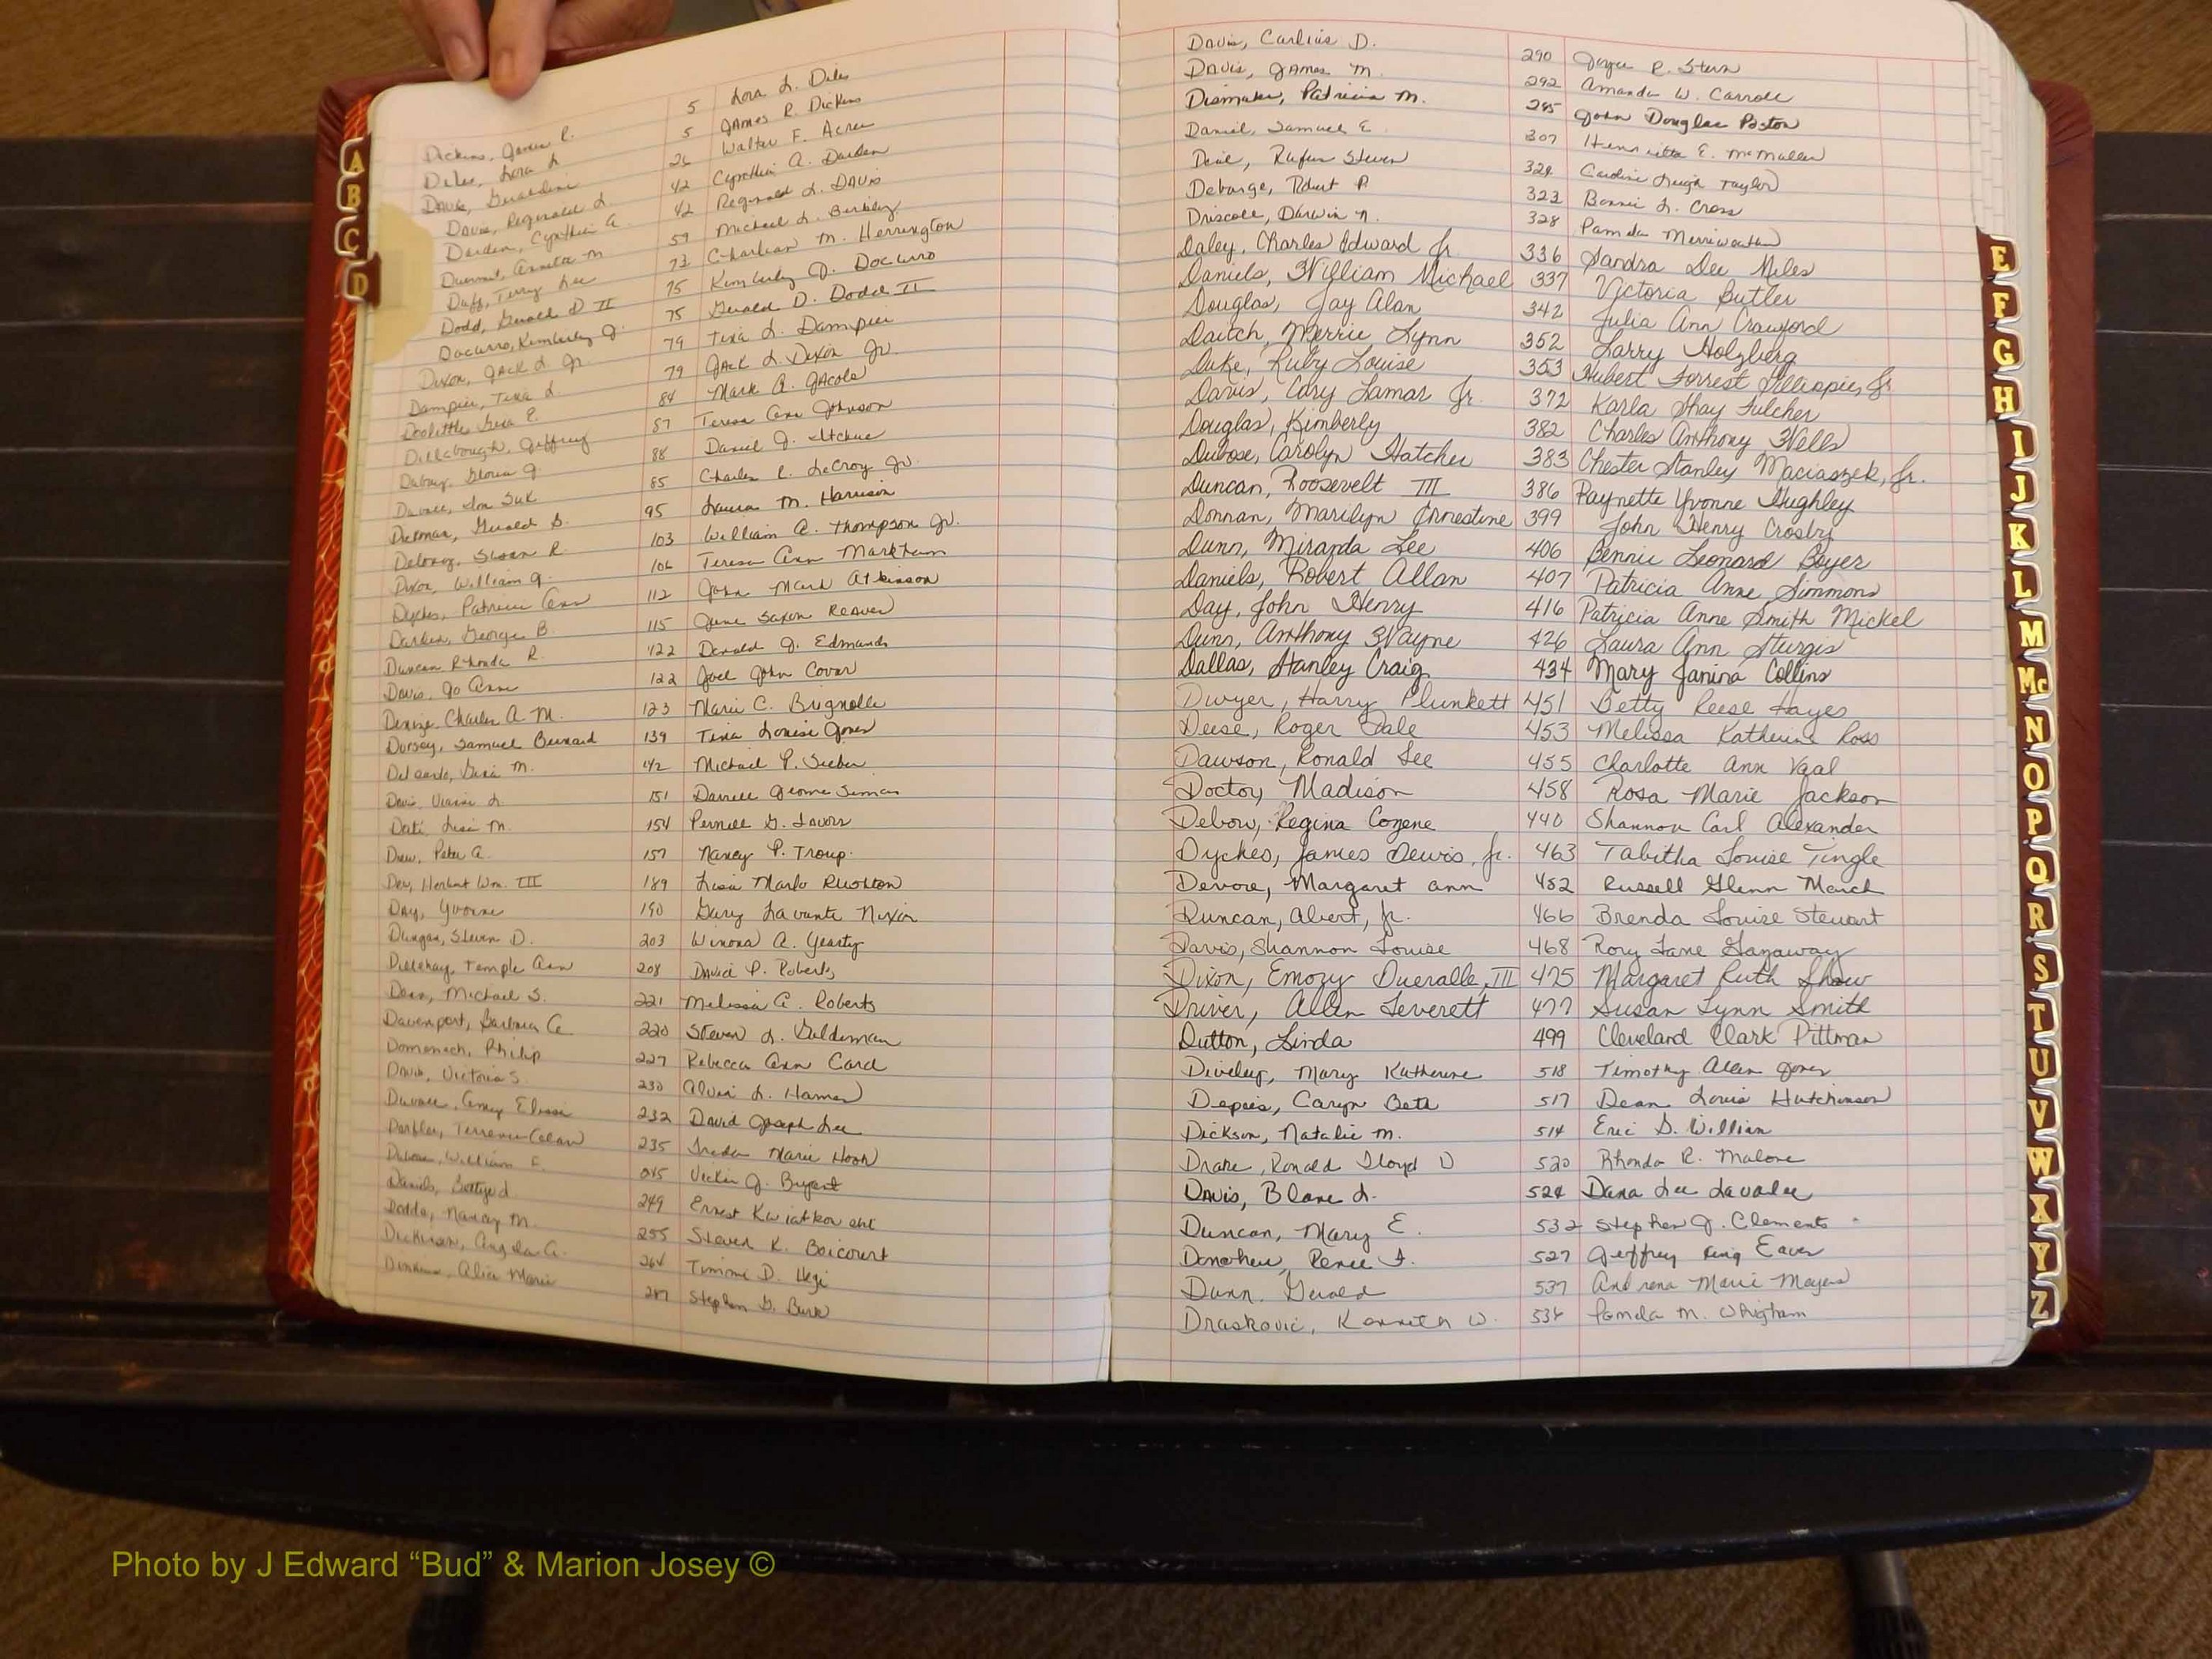 A
B
C
D
Dickens, James R. 5 Lora L. Dales
Dales, Lora L. 5 James R. Dickens
Davis, Geraldine 26 Walter F. Acree
Davis, Reginald L. 42 Cynthia A. Darden
Darden, Cynthia A. 42 Reginald L. Davis
Annette M. 59 Michael L.
Duff, Terry Lee 73 Charlean M. Herrington
Dodd, Gerald D II 75 Kimberly J. Docurro
Docurro, Kimberly J. 75 Gerald D. Dodd II
Dixon, Jack L. Jr. 79 Tina L. Dampier
Dampier, Tina L. 79 Jack L. Dixon Jr.
Doolittle, E. 84 Mark A. Jacobs
Dillabough, Jeffrey 87 Teresa Ann Johnson
Gloria J. 88 Daniel J.
Duvall, Suk 85 Charles R. LeCroy Jr.
Gerald S. 95 Laura M. Harrison
Deloney, Susan R. 103 William A. Thompson Jr.
Dixon, William G. 106 Teresa Ann Markham
Dyches, Patricia Ann 112 John Mark Atkinson
Darden, George B. 115 June Saxon Reaver
Duncan, Rhonda R. 122 Donald J. Edmunds
Davis, Jo Anne 122 Joel John Covar
Charles A. M. 123 Marie C. Brignolle
Dorsey, Samuel Bernard 139 Tina Louise Jones
M. 142 Michael P.
Davis, L. 151 Darrell Jerome
Dati, Lisa M. 154 Pernell G.
Drew, Peter A. 157 Nancy P. Troup.
Herbert Wm. III 189 Lisa Marlo Rushton
Day, Yvonne 190 Gary Lavante Nixon
Dungan, Steven D. 203 Winona A. Yearty
Temple Ann 208 David P. Roberts
Dean, Michael S. 221 Melissa A. Roberts
Davenport, Barbara A. 220 Steven L. Gelderman
Domenech, Philip 227 Rebecca Ann Card
Davis, Victoria S. 230 Alvin L. Hamer
Duvall, Amy Elissa 232 David Joseph Lee
Terrence (Alan) 235 Freda Marie Hook
William F. 045 Vickie J. Bryant
Daniels, 249 Ernest Kwiatkowski
Dodds, Nancy M. 255 Steven K. Boicourt
Dickinson, Angela A. 264 Timmi D. Hegi
Alice Marie 287 Stephen G. Burk
Davis, Carlisie D. 290 Joyce P. Stern
Davis, James M. 292 Amanda W. Carroll
Dismuke, Patricia M. 295 John Douglas Poston
Daniel, Samuel E. 307 Henrietta E. McMullen
Rufus Steven 324 Caroline Leigh Taylor
Debarge, Robert P. 323 Bonnie L. Cross
Driscoll, Darwin N. 328 Pamela Merriweather
Daley, Charles Edward Jr. 336 Sandra Dee Miles
Daniels, William Michael 337 Victoria Butler
Douglas, Jay Alan 342 Julia Ann Crawford
Daitch, Merrie Lynn 352 Larry Holzberg
Duke, Ruby Louise 353 Hubert Forrest Gillespie, Jr.
Davis, Cary Lamar Jr. 372 Karla Shay Fulcher
Douglas, Kimberly 382 Charles Anthony Wells
Dubose, Carolyn Hatcher 383 Chester Stanley Maciaszek, Jr.
Duncan, Roosevelt III 386 Raynette Yvonne Hughley
Donnan, Marilyn Ernestine 399 John Henry Crosby
Dunn, Miranda Lee 406 Bennie Leonard Boyer
Daniels, Robert Allan 407 Patricia Anne Simmons
Day, John Henry 416 Patricia Anne Smith Mickel
Dunn, Anthony Wayne 426 Laura Ann Sturgis
Dallas, Stanley Craig 434 Mary Janina Collins
Dwyer, Harry Plunkett 451 Betty Reese Hayes
Deese, Roger Dale 453 Melissa Katherine Ross
Dawson, Ronald Lee 455 Charlotte Ann Vaal
Doctor, Madison 458 Rosa Marie Jackson
Debow, Regina Cozene 440 Shannon Carl Alexander
Dyches, James Dewis, Jr. 463 Tabitha Louise Tingle
Devore, Margaret Ann 452 Russell Glenn March
Duncan, Albert, Jr. 466 Brenda Louise Stewart
Davis, Shannon Louise 468 Rory Lane Ganaway
Dixon, Emory Dueralle, III 475 Margaret Ruth Show
Driver, Allen Leverett 477 Susan Lynn Smith
Dutton, Linda 499 Cleveland Clark Pittman
Dively, Mary Katherine 518 Timothy Allen Jones
Depeis, Caryn Beth 517 Dean Louis Hutchinson
Dickson, Natalie M. 514 Eric D. William
Drake, Ronald Lloyd D 520 Rhonda R. Malone
Davis, Blane L. 524 Dana Lee Lavalee
Duncan, Mary E. 532 Stephen J. Clements
Donahew, Renee F. 527 Jeffrey King Eaves
Dunn, Gerald 537 Andrena Marie Mayes
Draskovic, Kenneth W. 534 Pamela M. Whigham
E
F
G
H
I
J
K
L
M
Mc
N
O
P
Q
R
S
T
U
V
W
X
Y
Z
Photo by J Edward “Bud” & Marion Josey ©